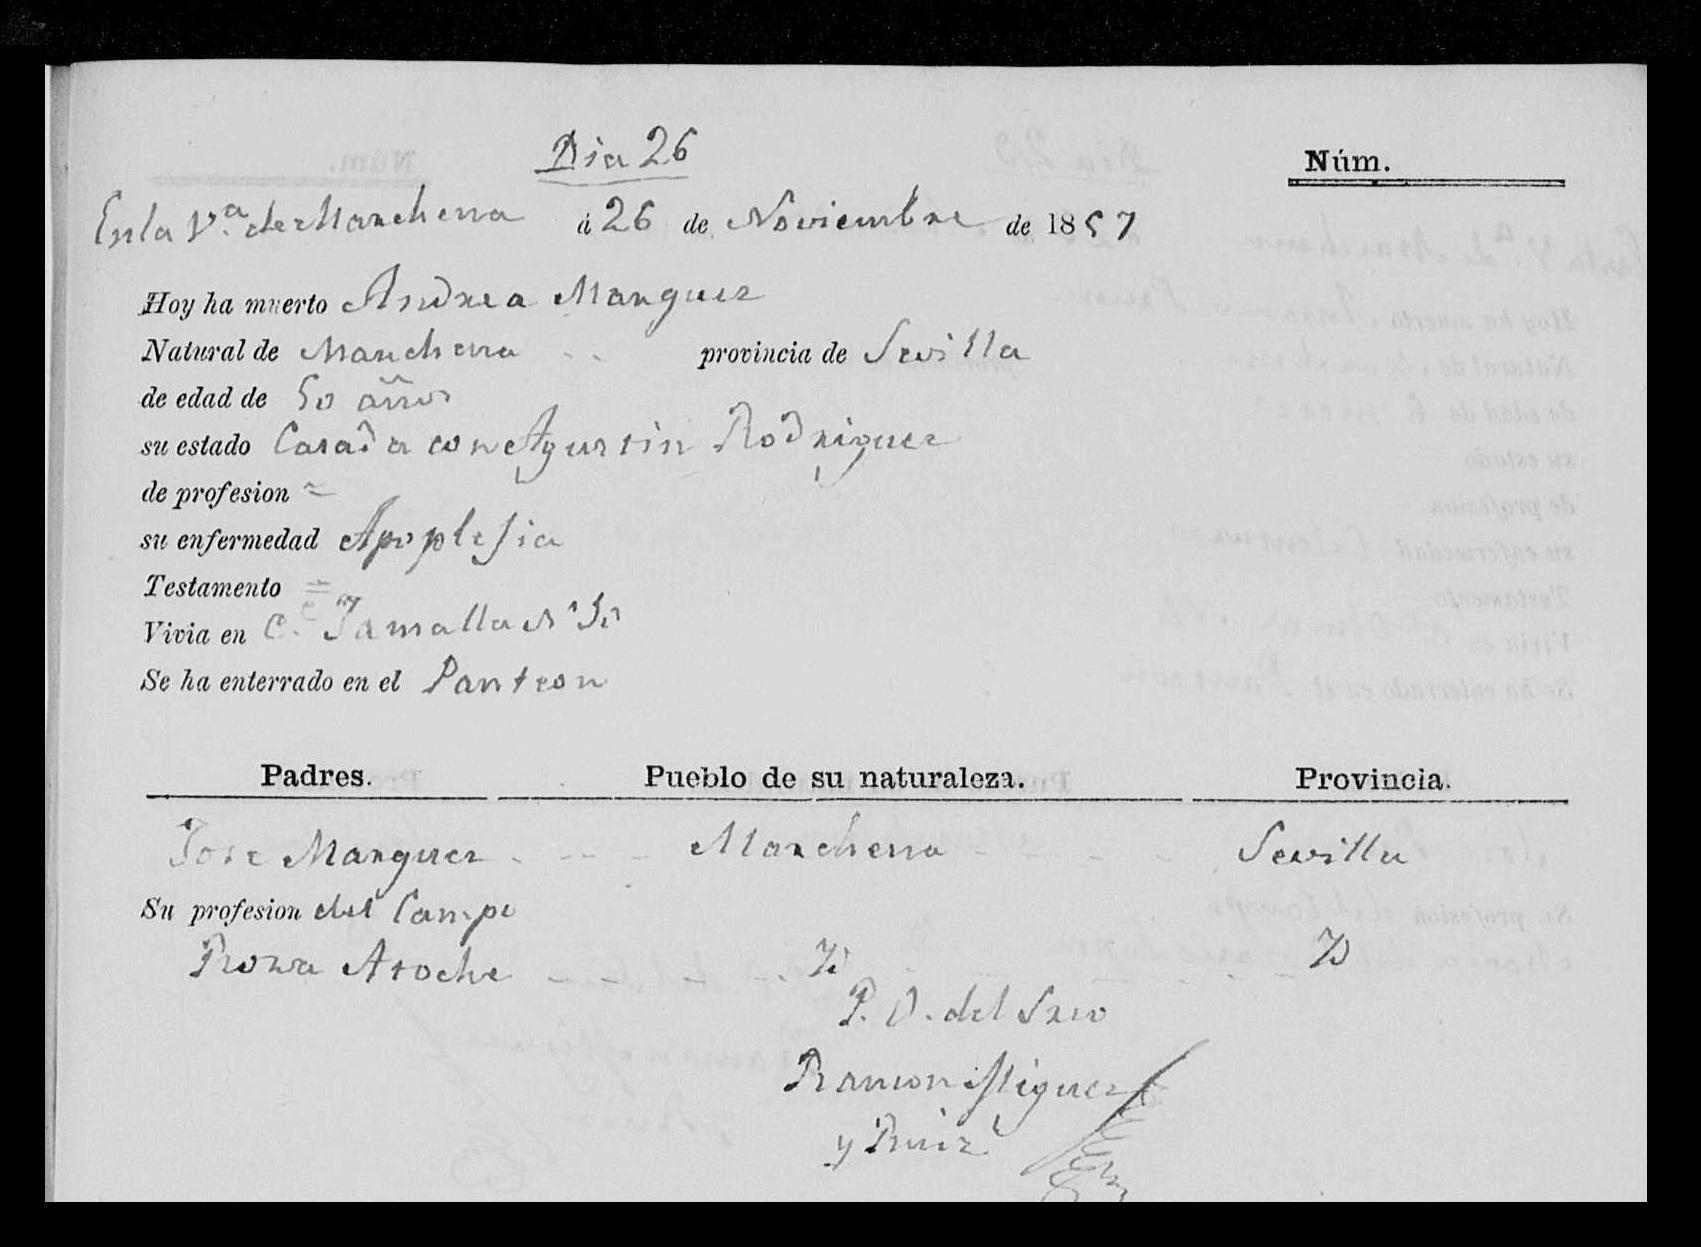 Dia 26
Núm.
En la V.ª de Marchena á 26 de Noviembre de 1857
Hoy ha muerto Andrea Marquez
Natural de Marchena provincia de Sevilla
de edad de 50 años
su estado Casada con Agustin Rodriguez
de profesion =
su enfermedad Apoplesia
Testamento =
Vivia en C.
Se ha enterrado en el Panteon
Padres. Pueblo de su naturaleza. Provincia.
Jose Marquez Marchena Sevilla
Su profesion del Campo
Rosa Atoche
P. O. del Srio
Ramon Miguez
y Ruiz